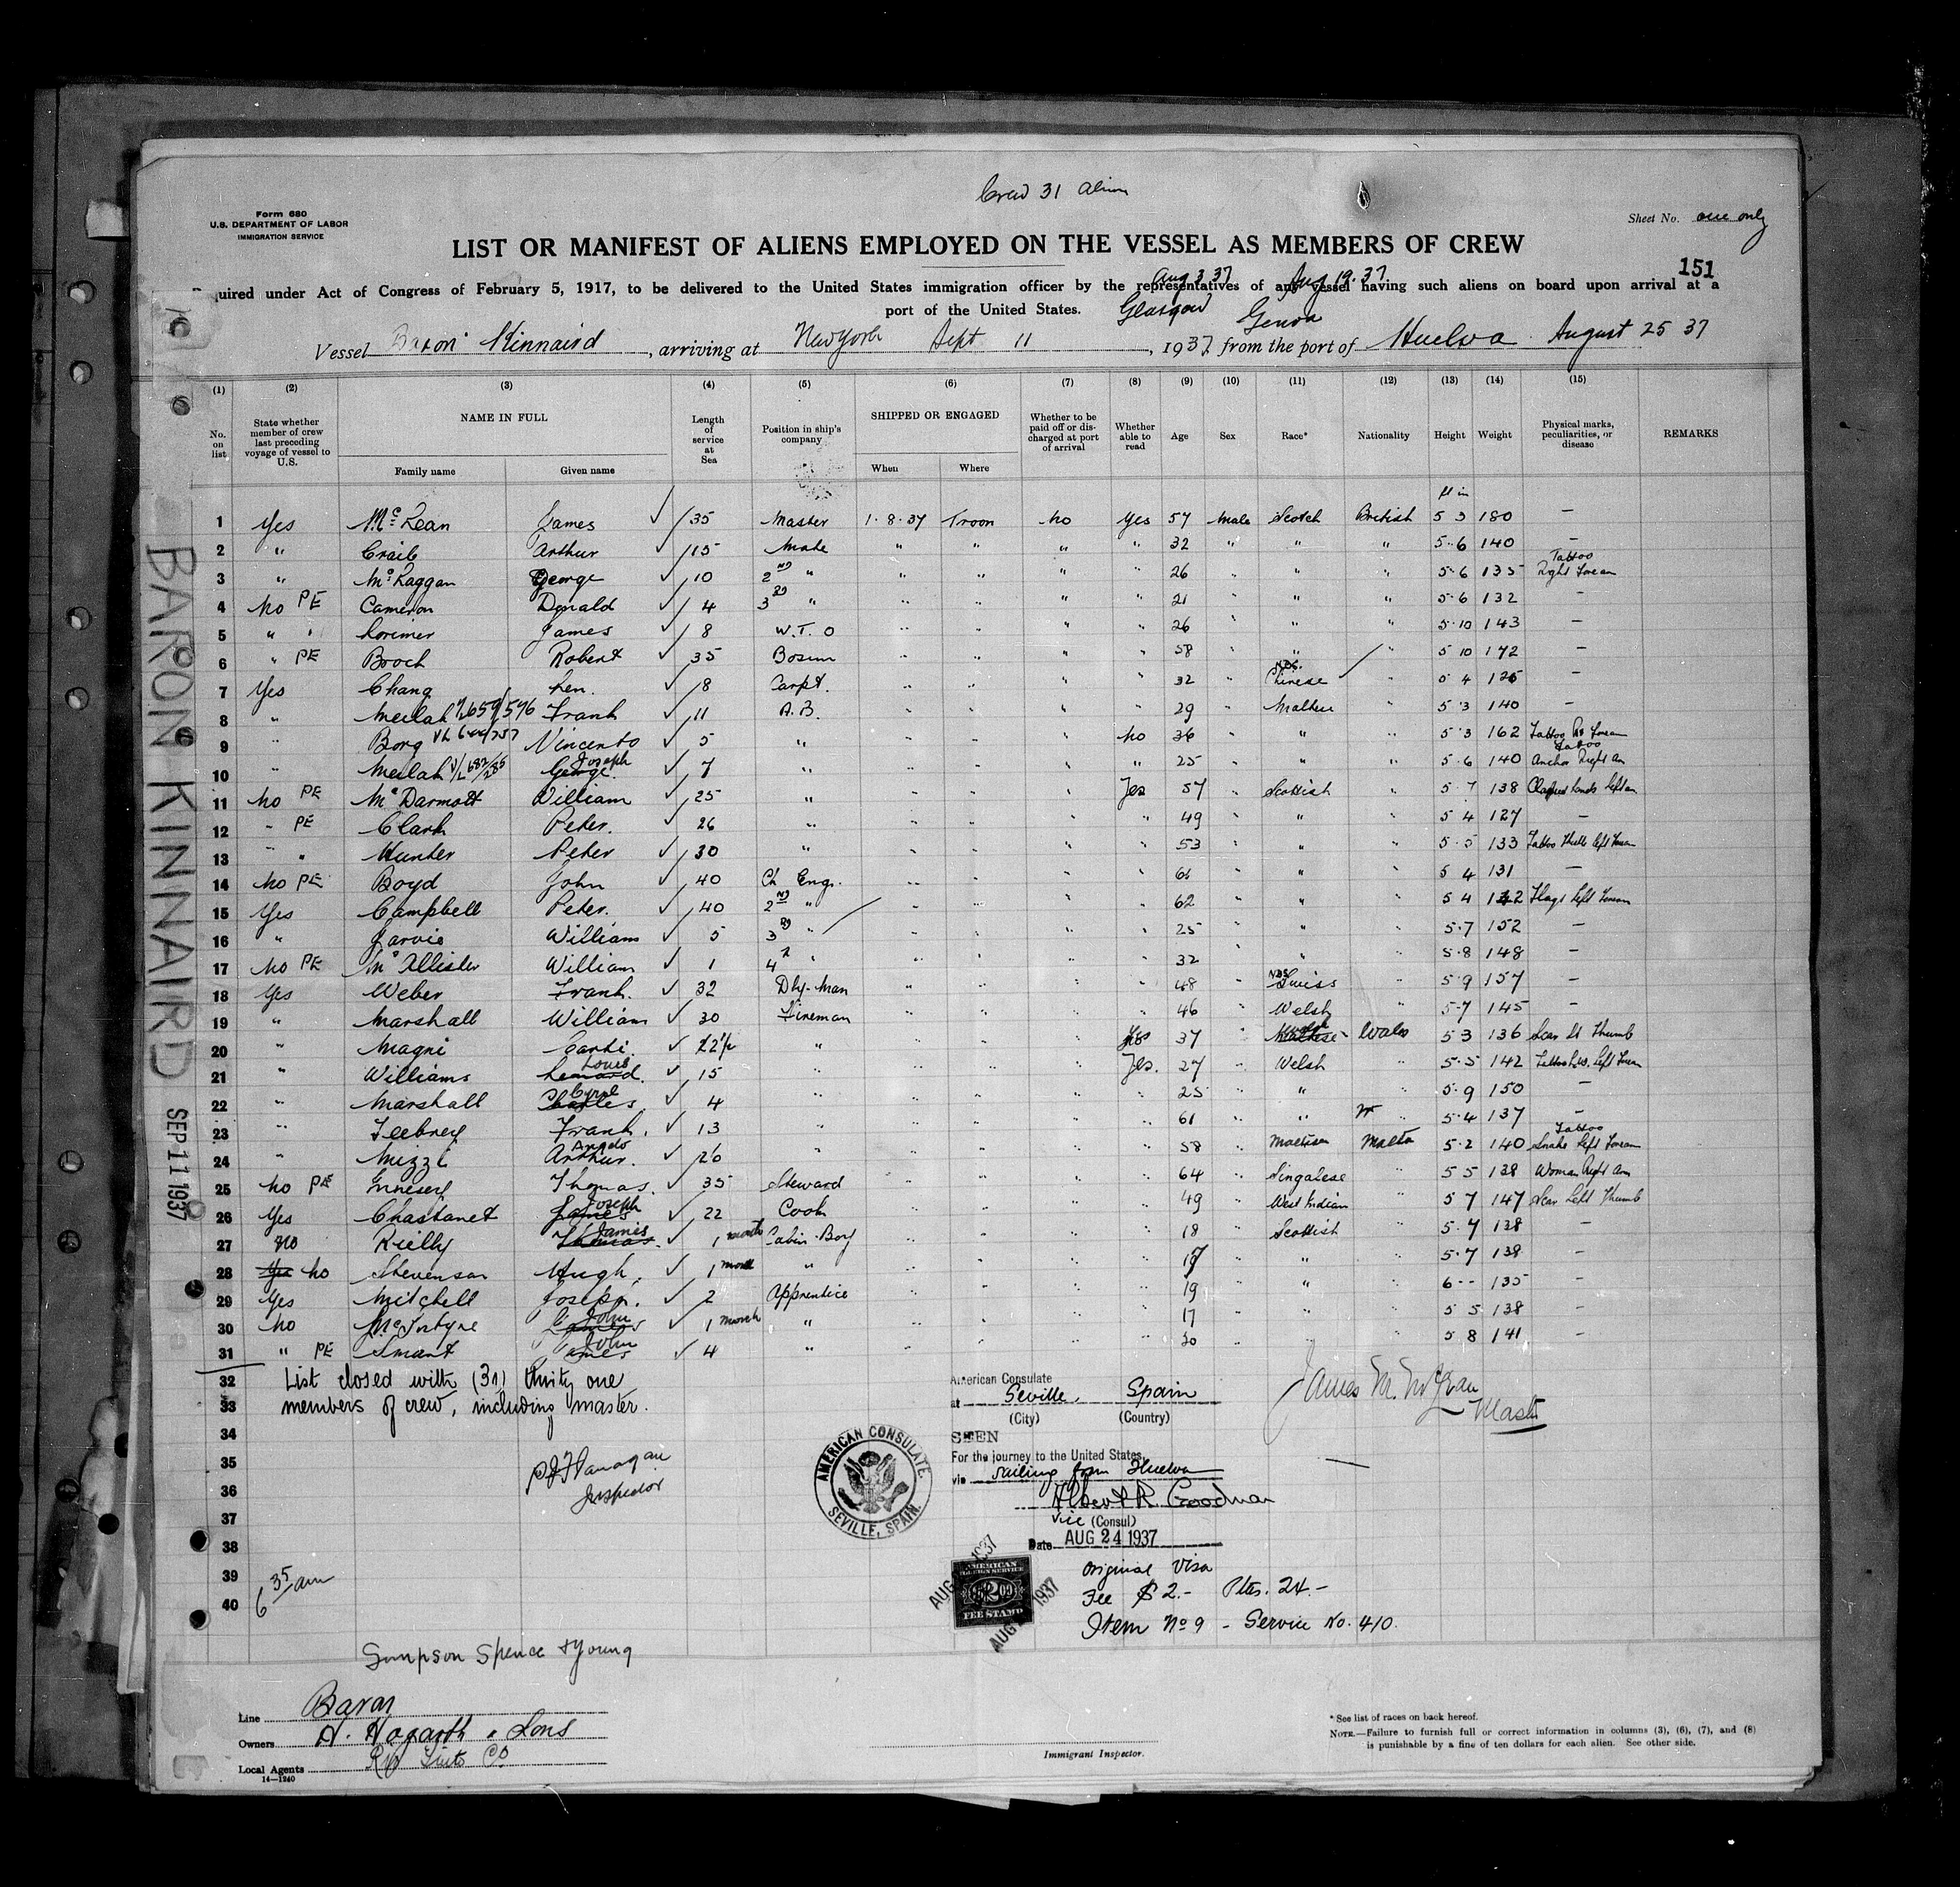 Crew 31 Alien
Form 680
U.S. DEPARTMENT OF LABOR
IMMIGRATION SERVICE
Sheet No. one only
LIST OR MANIFEST OF ALIENS EMPLOYED ON THE VESSEL AS MEMBERS OF CREW
151
Aug 3 37 Aug 19.37
quired under Act of Congress of February 5, 1917, to be delivered to the United States immigration officer by the representatives of any vessel having such aliens on board upon arrival at a
port of the United States. Glasgow Genoa
Vessel Baron Kinnaird, arriving at New York Sept 11, 1937, from the port of Huelva August 25 37
(1) (2) (3) (4) (5) (6) (7) (8) (9) (10) (11) (12) (13) (14) (15)
No. on list
State whether member of crew last preceding voyage of vessel to U.S.
NAME IN FULL
Family name Given name
Length of service at Sea
Position in ship's company
SHIPPED OR ENGAGED
When Where
Whether to be paid off or discharged at port of arrival
Whether able to read
Age Sex Race* Nationality Height Weight
Physical marks, peculiarities, or disease
REMARKS
ft in
1 Yes McLean James 35 Master 1.8.37 Troon No Yes 57 Male Scotch British 5 3 180 —
2 " Craib Arthur 15 Mate " " " " 32 " " " 5.6 140 —
3 " McLaggan George 10 2ND " " " " " 26 " " " 5.6 135 Tattoo Right Forearm
4 No PE Cameron Donald 4 3RD " " " " " 21 " " " 5.6 132 —
5 " " Lorimer James 8 W.T.O " " " " 26 " " " 5.10 143 —
6 " PE Broch Robert 35 Bosun " " " " 58 " " " 5 10 172 —
7 Yes Chang Len. 8 Carpt. " " " " 32 Chinese " 5 4 125 —
8 " Meilak Frank 11 A.B. " " " " 29 " Maltese " 5.3 140 —
9 " Borg Vincento 5 " " " " No 36 " " " 5.3 162 Tattoo Rt Forearm
10 " Meilak George Joseph 7 " " " " " 25 " " " 5.6 140 Tattoo Anchor Right Arm
11 No PE McDarmott William 25 " " " " Yes 57 " Scottish " 5.7 138 Clasped hands left arm
12 " PE Clark Peter. 26 " " " " " 49 " " " 5 4 127 —
13 " " Hunter Peter 30 " " " " " 53 " " " 5.5 133
14 No PE Boyd John 40 Ch Engr. " " " " 61 " " " 5 4 131 —
15 Yes Campbell Peter. 40 2ND " " " " " 62 " " " 5 4 Flags Left Forearm
16 " Jarvie William 5 3RD " " " " " 25 " " " 5.7 152 —
17 No PE McAllister William 1 4 " " " " " 32 " " " 5.8 148 —
18 Yes Weber Frank. 32 Dky-Man " " " " 48 " Swiss " 5 9 157 —
19 " Marshall William 30 Fireman " " " " 46 " Welsh " 5.7 145 —
20 " Magri Carti. " " " " 37 " Maltese Wales 5 3 136 Scar Lt Thumb
21 " Williams Leonard. Louis 15 " " " " Yes. 27 " Welsh " 5.5 142
22 " Marshall Charles Cyril 4 " " " " " 25 " " " 5.9 150 —
23 " Frank. 13 " " " " " 61 " " " 5.4 137 —
24 " Mizzi Arthur. Angelo 26 " " " " " 58 " Maltese Malta 5.2 140 Tattoo Snake Left Forearm
25 No PE Thomas. 35 Steward " " " " 64 " Singalese " 5 5 138 Woman Right Arm
26 Yes Chastanet James Joseph 22 Cook " " " " 49 " West Indian " 5 7 147 Scar Left Thumb
27 No Reilly Thomas. James 1 month Cabin-Boy " " " " 18 " Scottish " 5.7 138 —
28 Yes No Stevenson Hugh. 1 month " " " " " " " " 5.7 138 —
29 Yes Mitchell Joseph. 2 Apprentice " " " " 19 " " " 6 -- 135 —
30 No McIntyre James John 1 month " " " " " 17 " " " 5 5 138 —
31 " PE Smart James John 4 " " " " " " " " 5 8 141 —
32 List closed with (31) thirty one
33 members of crew, including master.
34
35
36
37
38
39
40
Flanagan
Inspector
6 35 am
American Consulate
at Seville, Spain
(City) (Country)
SEEN
For the journey to the United States,
via sailing from Huelva
Albert R. Goodman
Vice (Consul)
Date AUG 24 1937
AMERICAN CONSULATE.
SEVILLE, SPAIN.
James M. McLean
Master
AMERICAN
FOREIGN SERVICE
$2.00
FEE STAMP
AUG 1937
AUG 1937
Original Visa
Fee $2.- Ptas. 24.-
Item No 9 - Service No. 410.
Simpson Spence & Young
Line Baron
Owners H. Hogarth & Sons
Local Agents Rio Tinto Co
14—1240
Immigrant Inspector.
* See list of races on back hereof.
NOTE.—Failure to furnish full or correct information in columns (3), (6), (7), and (8)
is punishable by a fine of ten dollars for each alien. See other side.
BARON KINNAIRD SEP 11 1937